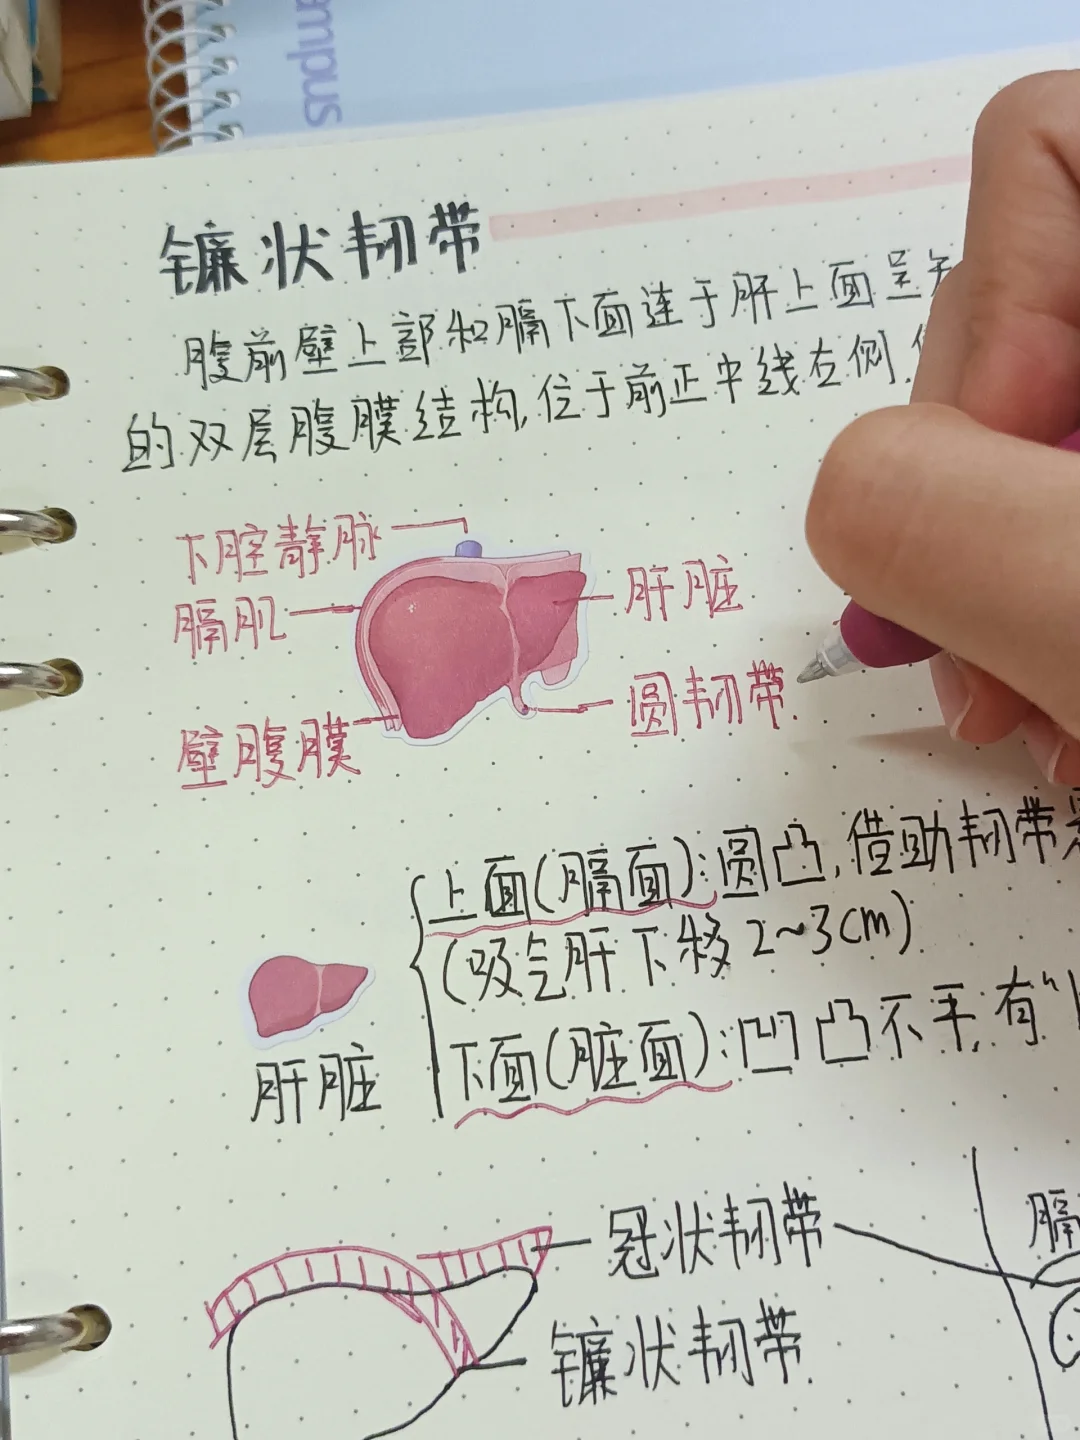 mpus
镰状韧带
腹前壁上部和膈下面连于肝上面呈
的双层腹膜结构,位于前正中线右侧.
下腔静脉
膈肌
肝脏
圆韧带.
壁腹膜
上面(膈面):圆凸,借助韧带
(吸气肝下移2~3cm)
下面(脏面):凹凸不平,有“
肝脏
冠状韧带
膈
镰状韧带